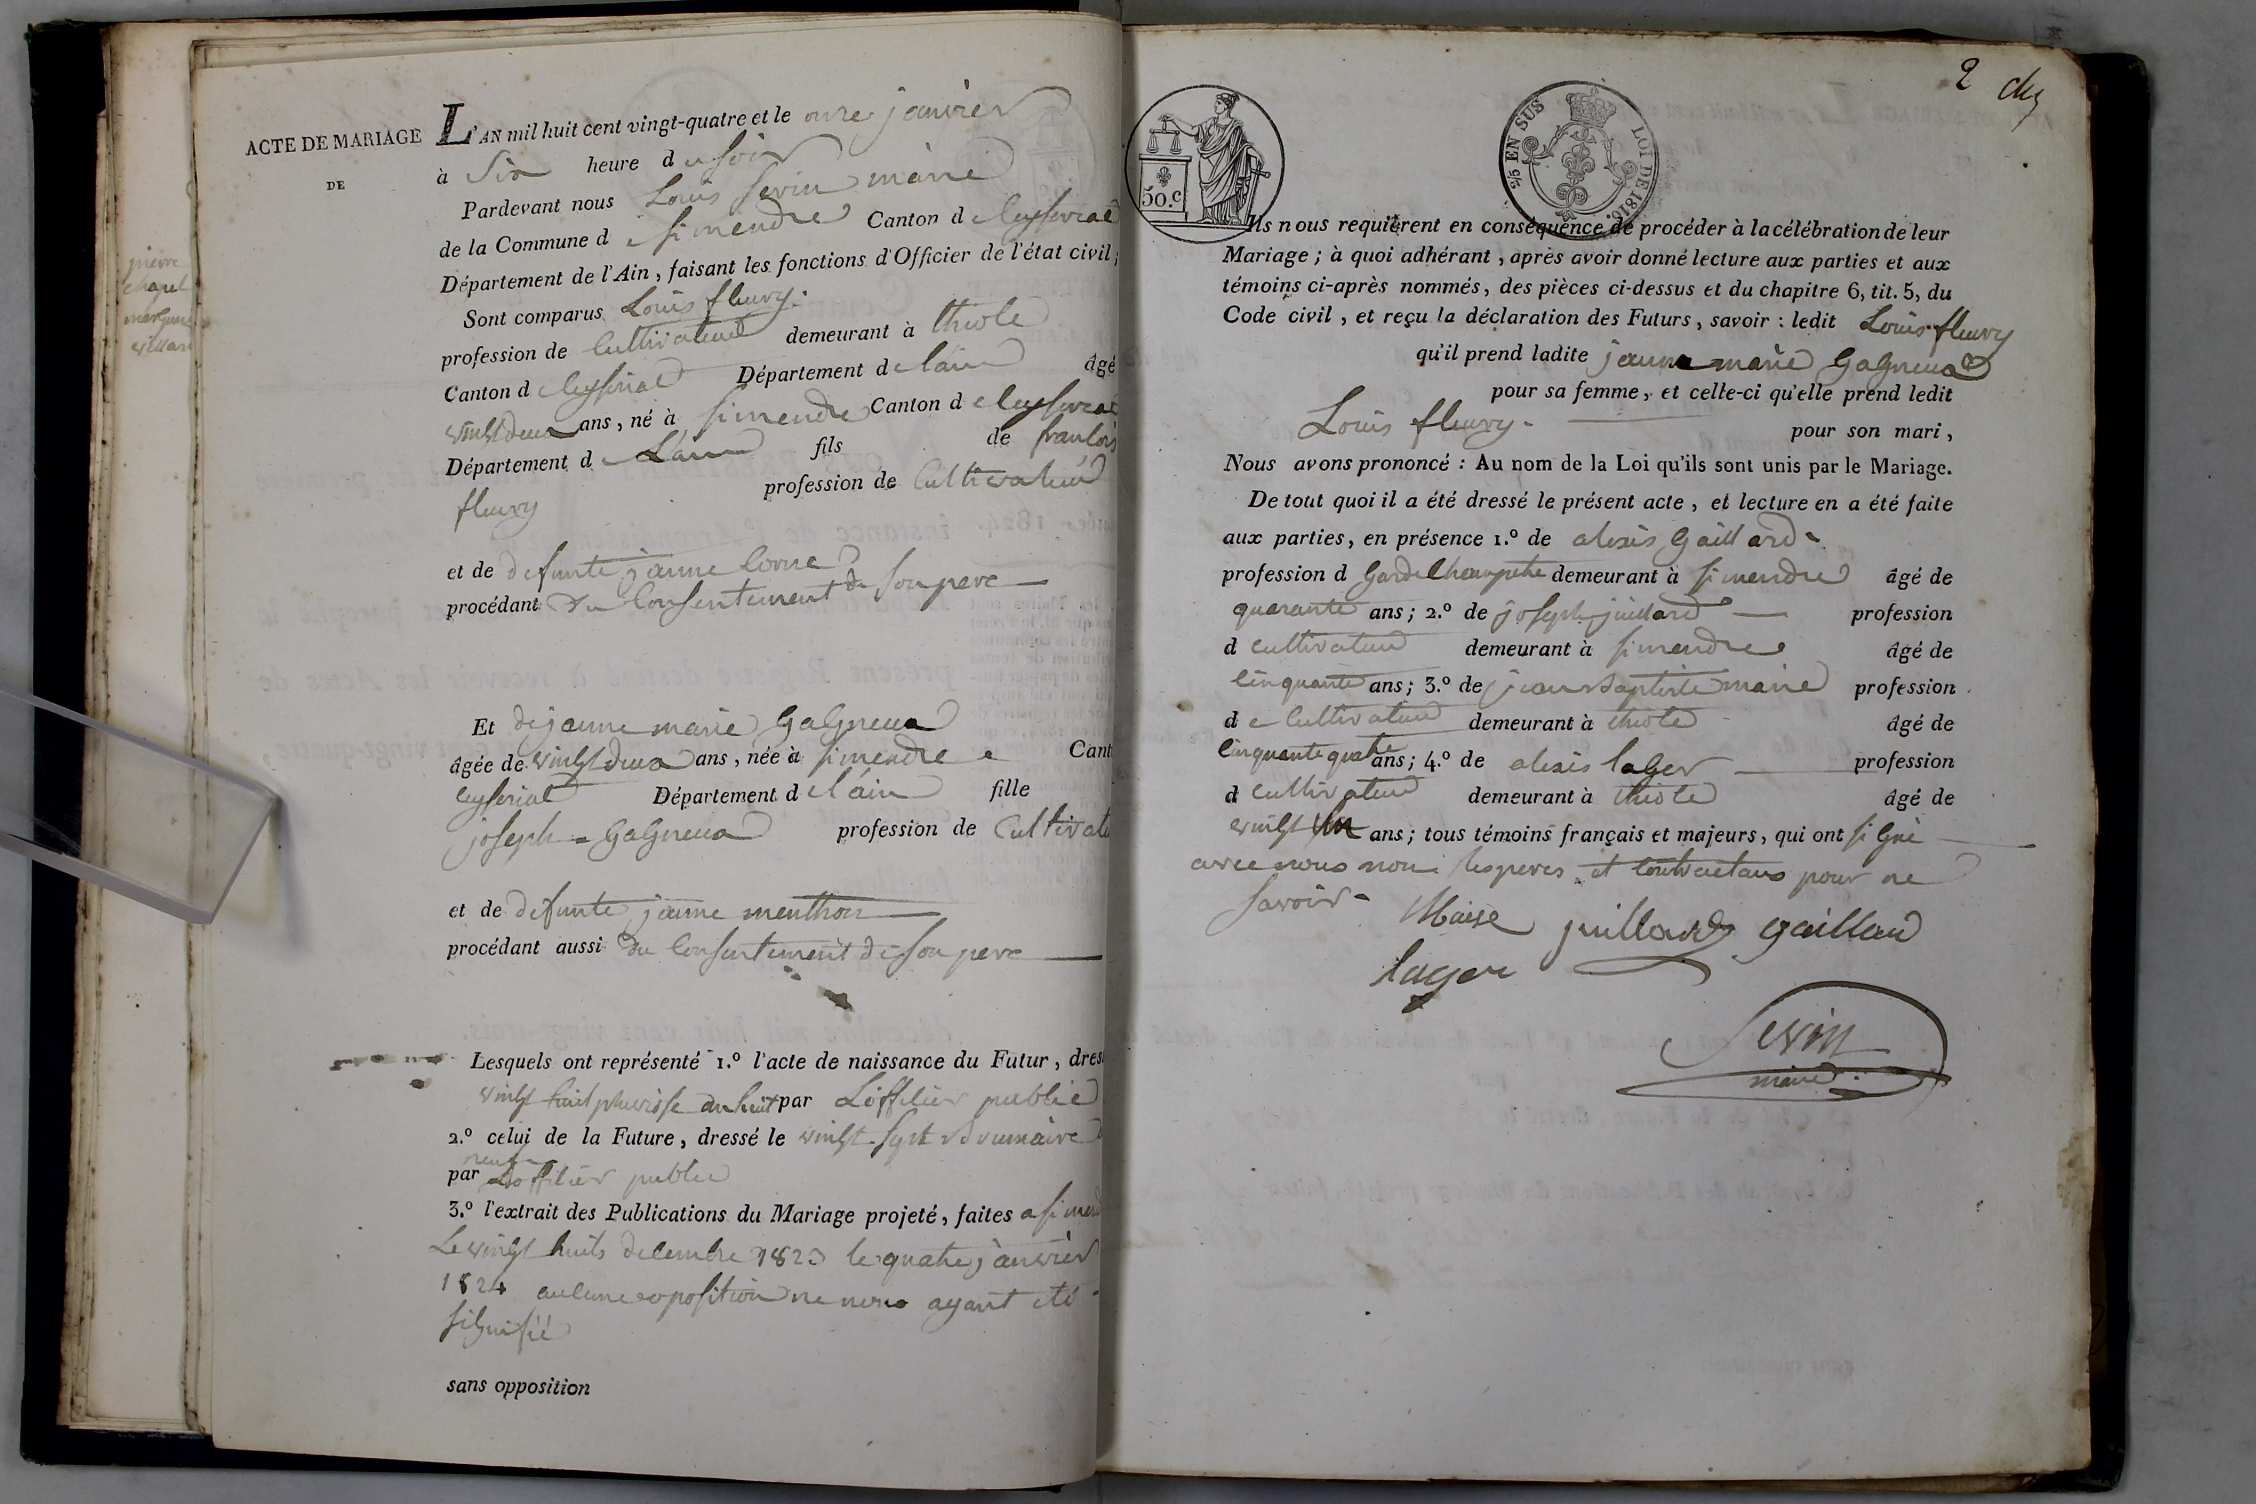 pierre
chapel
ACTE DE MARIAGE
DE
L'AN mil huit cent vingt-quatre et le onze janvier
à Six heure du soir
Pardevant nous Louis Sevin maire
de la Commune de simendre Canton de Ceyseriat
Département de l'Ain, faisant les fonctions d'Officier de l'état civil;
Sont comparus Louis fleury.
profession de Cultivateur demeurant à thiole
Canton de Ceyseriat Département de l'ain âgé
vingt deux ans, né à simendre Canton de Ceyseriat
Département de L'ain fils de francois
fleury profession de Cultivateur
et de defunte jeanne
procédant du Consentement de son pere
Et de jeanne marie Gagneux
âgée de vingt deux ans, née à simendre Cant
Ceyseriat Département de l'ain fille
joseph = Gagneux profession de Cultivate
et de defunte jeanne menthon
procédant aussi du Consentement de son pere
Lesquels ont représenté 1.º l'acte de naissance du Futur, dres
vingt huit pluviose an huit par L'officier public
2.º celui de la Future, dressé le vingt-sept brumaire
neuf
par L'officier public
3.º l'extrait des Publications du Mariage projeté, faites a simend
Le vingt huit decembre 1823 le quatre janvier
1824 aucune opposition ne nous ayant eté
signifié
sans opposition
2 de
50.c
2/5 EN SUS LOI DE 1816.
Ils nous requièrent en conséquence de procéder à la célébration de leur
Mariage; à quoi adhérant, après avoir donné lecture aux parties et aux
témoins ci-après nommés, des pièces ci-dessus et du chapitre 6, tit. 5, du
Code civil, et reçu la déclaration des Futurs, savoir : ledit Louis fleury
qu'il prend ladite jeanne marie Gagneux
pour sa femme, et celle-ci qu'elle prend ledit
Louis fleury. pour son mari,
Nous avons prononcé : Au nom de la Loi qu'ils sont unis par le Mariage.
De tout quoi il a été dressé le présent acte, et lecture en a été faite
aux parties, en présence 1.º de alexis Gaillard
profession d Garde Champetre demeurant à simendre âgé de
quarante ans; 2.º de joseph juillard profession
d cultivateur demeurant à simendre âgé de
Cinquante ans; 3.º de jean baptiste maire profession
de Cultivateur demeurant à thiole âgé de
Cinquante quatre ans; 4.º de alexis lager profession
d cultivateur demeurant à thiole âgé de
vingt un ans; tous témoins français et majeurs, qui ont signé
avec nous non les peres et contractans pour ne
savoir
Maire juillard gaillard
lager
Sevin
maire